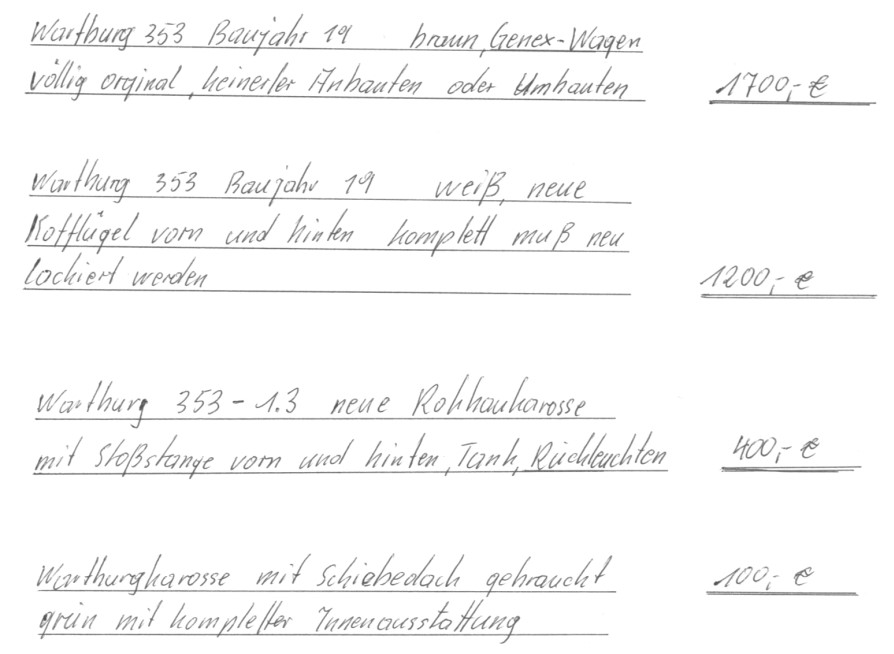 Wartburg 353 Baujahr 19 braun, Genex-Wagen
völlig orginal, keinerler Anbauten oder Umbauten 1700,- €
Wartburg 353 Baujahr 19 weiß, neue
Kotflügel vorn und hinten komplett muß neu
lackiert werden 1200,- €
Wartburg 353-1.3 neue Rohbaukarosse
mit Stoßstange vorn und hinten, Tank, Rückleuchten 400,- €
Wartburgkarosse mit Schiebedach gebraucht 100,- €
grün mit kompletter Innenausstattung